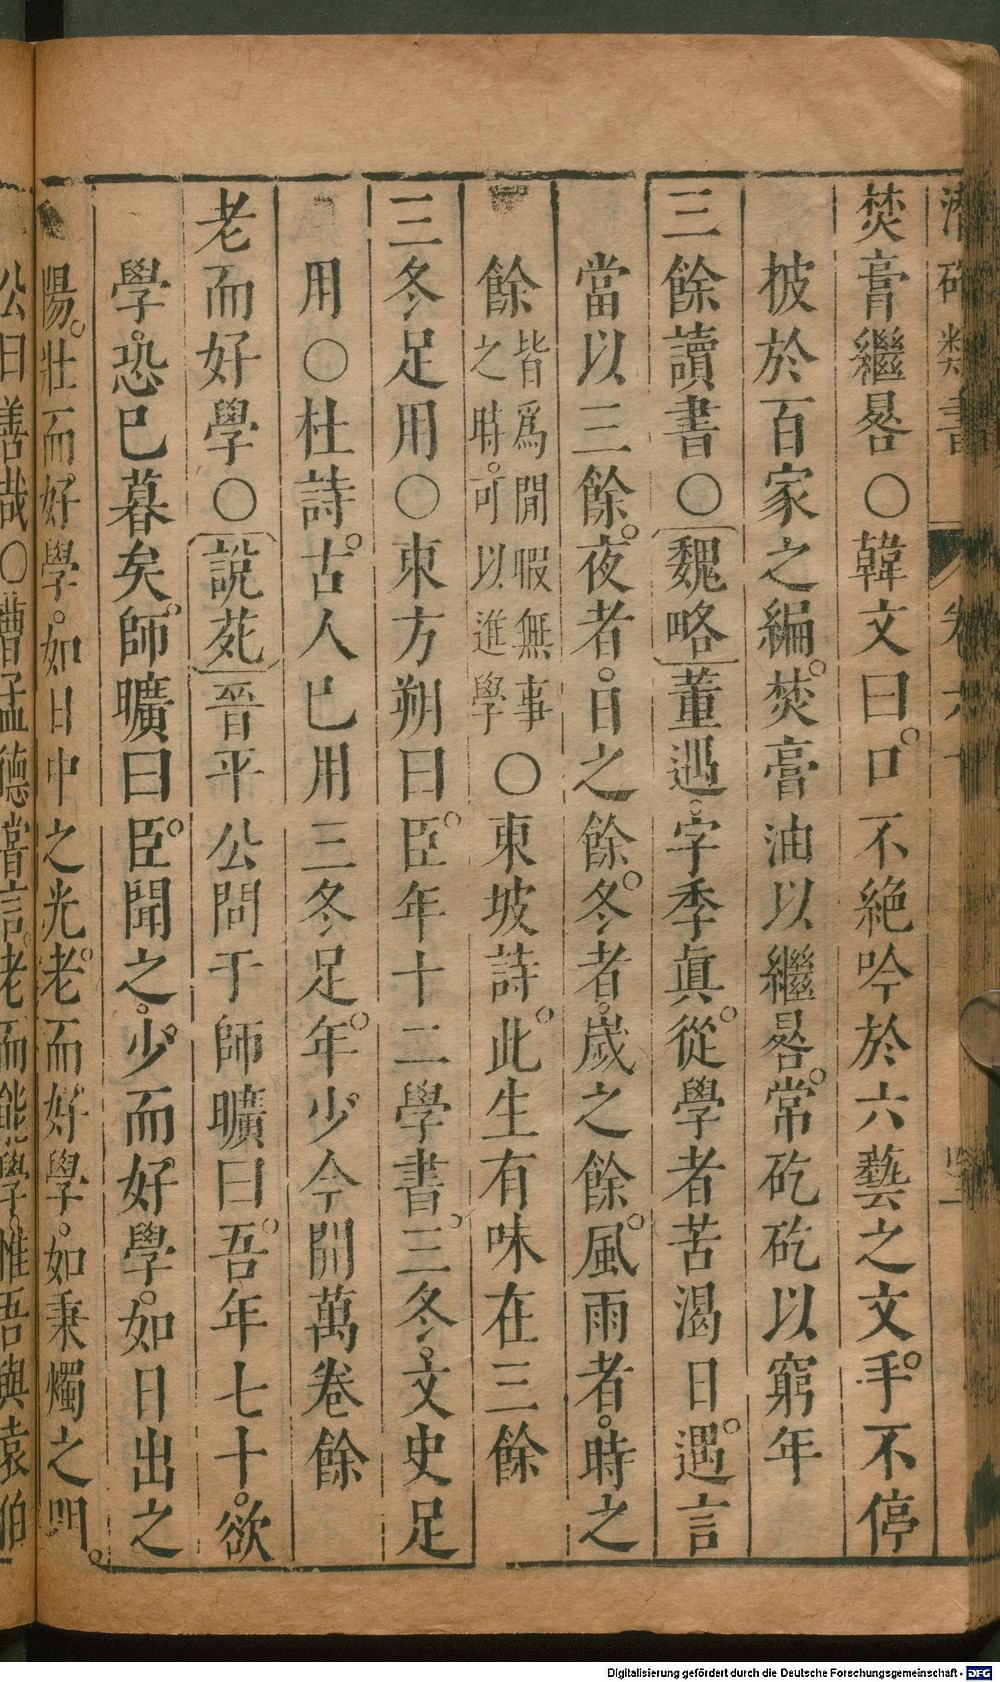 潛確類書 卷六十
焚膏繼晷○韓文曰。口不絕吟於六藝之文。手不停
披於百家之編。焚膏油以繼晷。常矻矻以窮年
三餘讀書○魏略董遇。字季真。從學者苦渴日。遇言
當以三餘。夜者。日之餘。冬者。歲之餘。風雨者。時之
餘皆爲閒暇無事之時。可以進學○東坡詩。此生有味在三餘
三冬足用○東方朔曰。臣年十二學書。三冬。文史足
用○杜詩。古人已用三冬足。年少。今開萬卷餘
老而好學○說苑晉平公問于師曠曰。吾年七十。欲
學。恐已暮矣。師曠曰。臣。聞之。少。而好學。如日出之
陽。壯而好學。如日中之光。老。而好學。如秉燭之明。
公曰善哉○曹孟德嘗言。老而能學。惟吾與袁伯
Digitalisierung gefördert durch die Deutsche Forschungsgemeinschaft - DFG